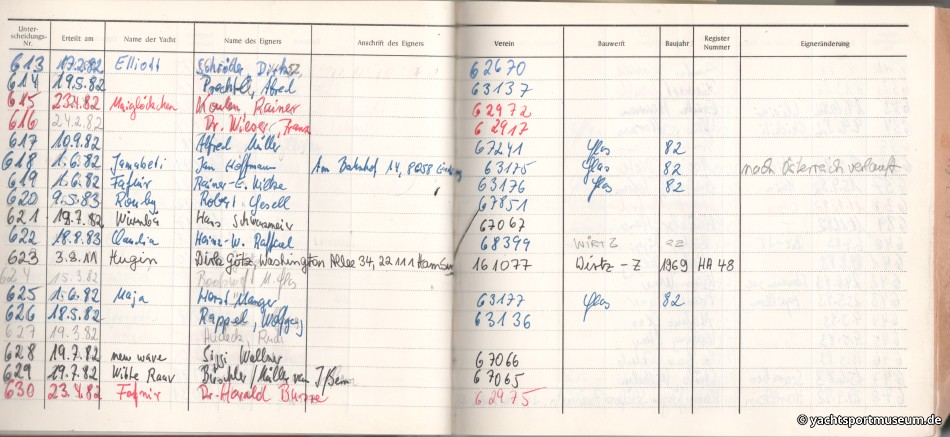 Unter-scheidungs-Nr. Erteilt am Name der Yacht Name des Eigners Anschrift des Eigners Verein Bauwerft Baujahr Register Nummer Eigneränderung
613 17.2.82 Elliott Schröder, 62670
614 19.5.82 63137
615 23.4.82 Maiglöckchen Rainer 62972
616 24.2.82 Dr. Wieser, Franz 62917
617 10.9.82 Alfred Müller 67241 Glas 82
618 1.6.82 Jamabeti Jan Hoffmann Am Bahnhof 14, 63175 Glas 82 nach Österreich verkauft
619 1.6.82 Fafnir Rainer-E. 63176 Glas 82
620 9.5.83 Robert Gesell 67851
621 19.7.82 Hans 67067
622 18.8.83 Claudia Heinz-W. 68399 WIRTZ
623 3.9.11 Hugin Dirk Götz, Washington Allee 34, 22111 Hamburg 161077 Dirtz - Z 1969 HA 48
624 15.3.82
625 1.6.82 Maja Horst Manger 63177 Glas 82
626 18.5.82 Rappel, Wolfgang 63136
627 19.3.82
628 19.7.82 new wave Sissi Wallner 67066
629 19.7.82 Witte Raav 67065
630 23.4.82 Fafnir Dr. Harald 62975
© yachtsportmuseum.de